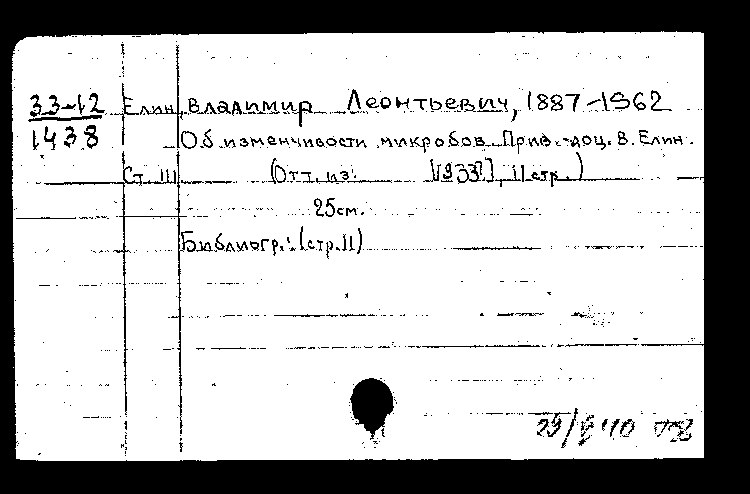 33-12 Елин, Владимир Леонтьевич, 1887-1962
1438 Об изменчивости микробов. Прив.-доц. В. Елин.
Ст. III (Отт. из: [1933?], 11 стр.)
25 см.
Библиогр.: (стр. 11)
29/